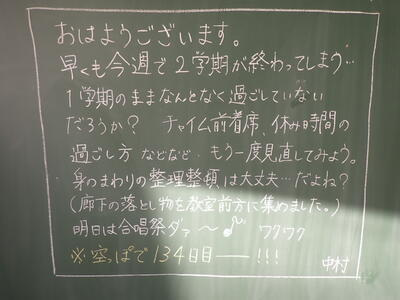 おはようございます。
早くも今週で2学期が終わってしまう…
1学期のままなんとなく過ごしていない
だろうか? チャイム前着席、休み時間の
過ごし方 などなど…もう一度見直してみよう。
身のまわりの整理整頓は大丈夫…だよね?
(廊下の落とし物を教室前方に集めました。)
明日は合唱祭ダァ〜♪ ワクワク
※空っぽで134日目——!!!
中村